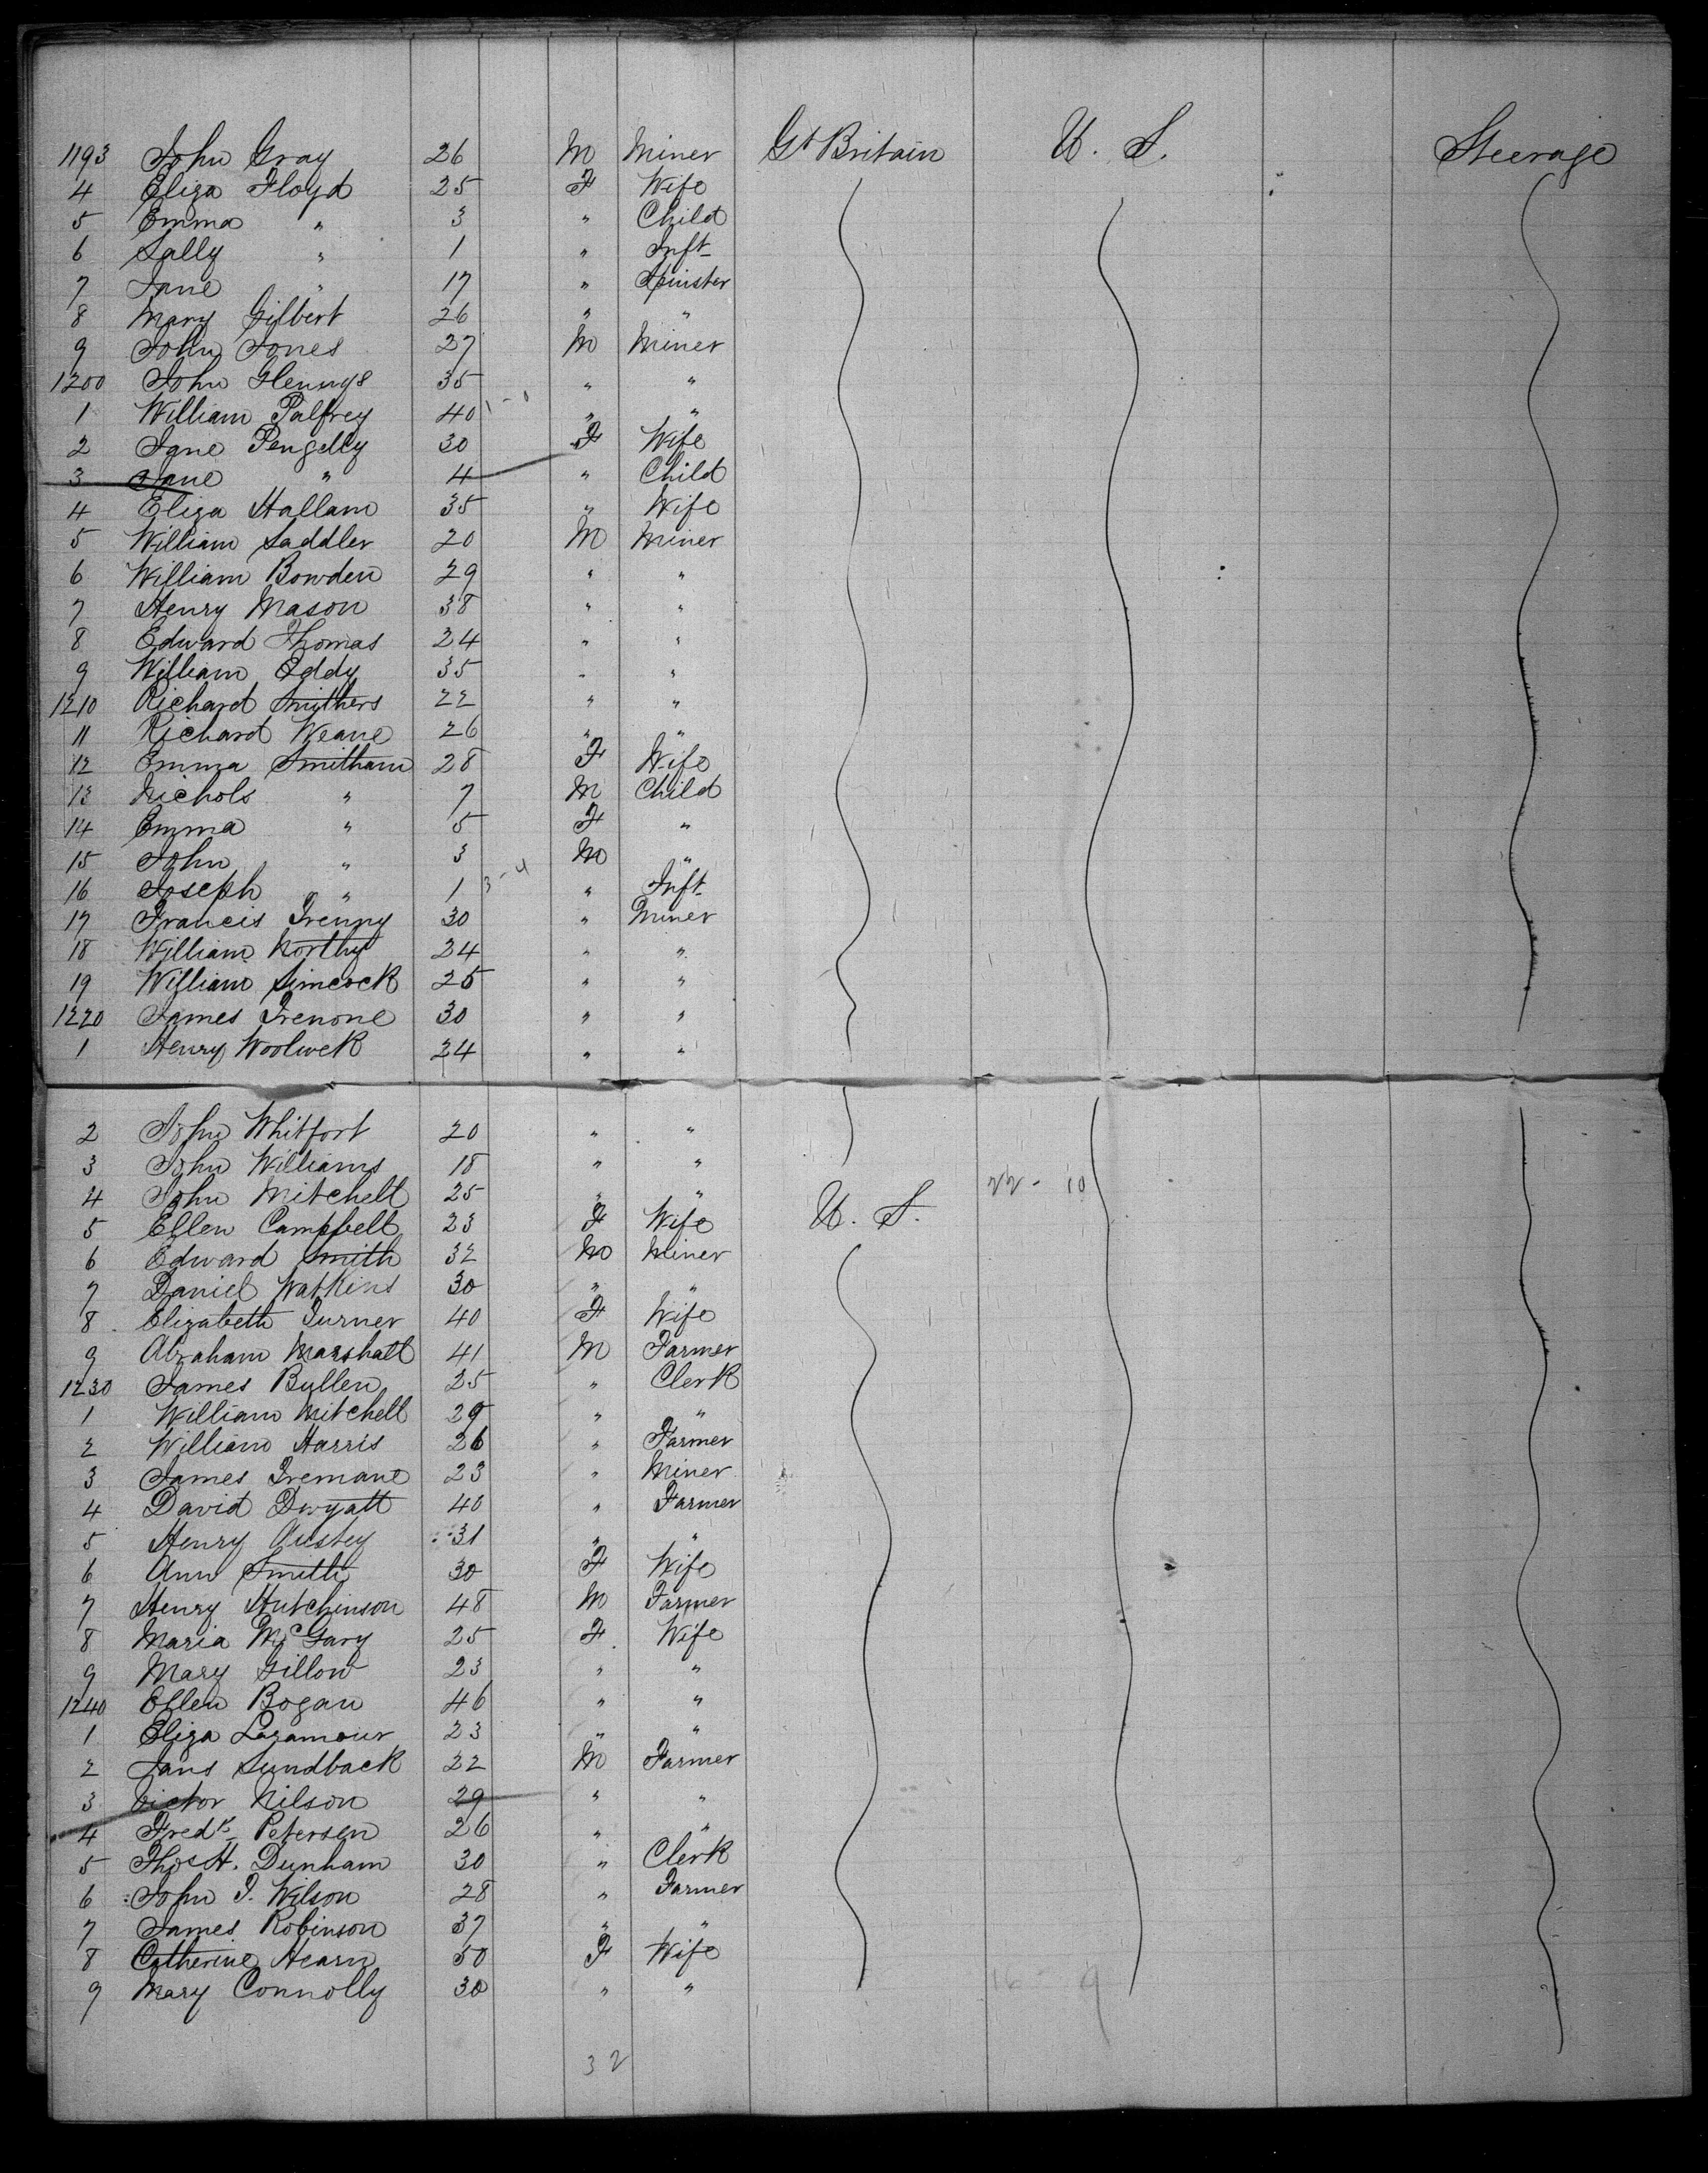 1193 John Gray 26 M Miner Gt Britain U. S. Steerage
4 Eliza Floyd 25 F Wife
5 Emma " 3 " Child
6 Sally " 1 " Inft
7 Jane " 17 " Spinster
8 Mary Gilbert 26 " "
9 John Jones 27 M Miner
1200 John Glennys 35 " "
1 William Palfrey 40 " "
2 Jane Pengelly 30 F Wife
3 Jane " 4 " Child
4 Eliza Hallam 35 " Wife
5 William Saddler 20 M Miner
6 William Bowden 29 " "
7 Henry Mason 38 " "
8 Edward Thomas 24 " "
9 William Eddy 35 " "
1210 Richard Smithers 22 " "
11 Richard Weane 26 " "
12 Emma Smitham 28 F Wife
13 Nichols " 7 M Child
14 Emma " 5 F "
15 John " 3 M "
16 Joseph " 1 3-4 " Inft
17 Francis 30 " Miner
18 William Northy 24 " "
19 William Simcock 25 " "
1220 James Trenone 30 " "
1 Henry Woolwek 24 " "
2 John Whitfort 20 " "
3 John Williams 18 " "
4 John Mitchell 25 " " 22 - 10
5 Ellen Campbell 23 F Wife U. S.
6 Edward Smith 32 M Miner
7 Daniel Watkins 30 " "
8 Elizabeth Turner 40 F Wife
9 Abraham Marshall 41 M Farmer
1230 James Bullen 25 " Clerk
1 William Mitchell 29 " "
2 William Harris 26 " Farmer
3 James Tremane 23 " Miner
4 David Dwyatt 40 " Farmer
5 Henry Austey 31 " "
6 Ann Smith 30 F Wife
7 Henry Hutchinson 48 M Farmer
8 Maria McGary 25 F Wife
9 Mary Gillow 23 " "
1240 Ellen Bogan 46 " "
1 Eliza Lazamour 23 " "
2 Jans Sundback 22 M Farmer
3 Victor Nilson 29 " "
4 Fredk Petersen 26 " "
5 Thos H. Dunham 30 " Clerk
6 John J. Wilson 28 " Farmer
7 James Robinson 37 " "
8 Catherine Hearn 50 F Wife
9 Mary Connolly 30 " " 16 - 9
32